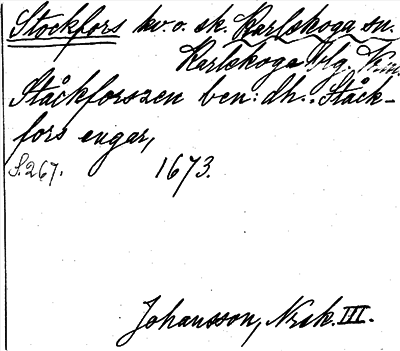 Stockfors kv. o. sk. Karlskoga sn.
Karlskoga blg.
Ståckforszen ben: dh.. Ståck-
fors engar,
S. 267. 1673.
Johansson, Nrsk. III.